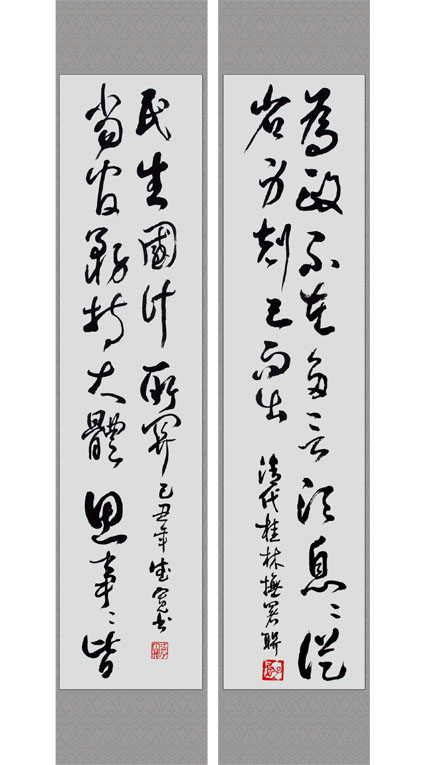 為政不在多言須息〻從
省身剋己而出
清代桂林撫署聯
當官務持大體思事〻皆
民生國計所關
己丑年寬書